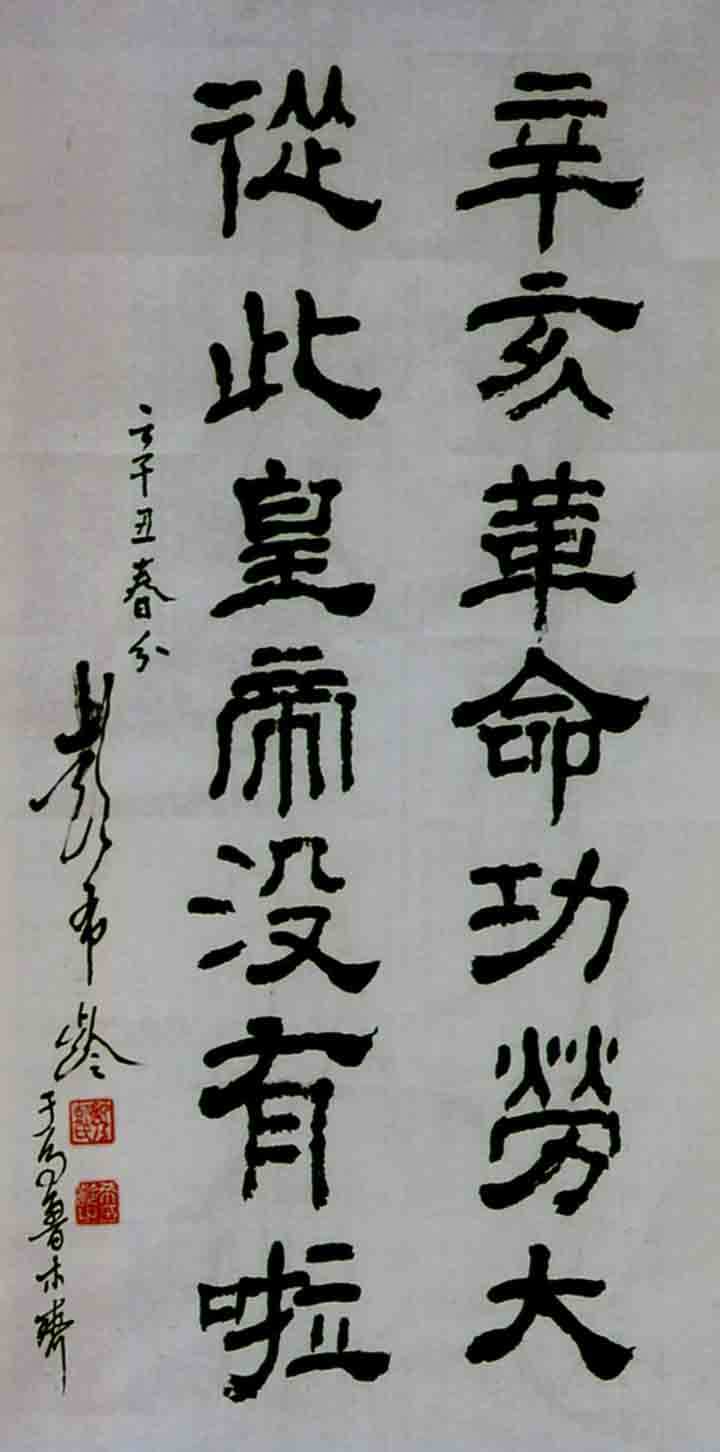 辛亥革命功勞大
從此皇帝没有啦
辛丑春分
彭希齡
于烏魯木齊